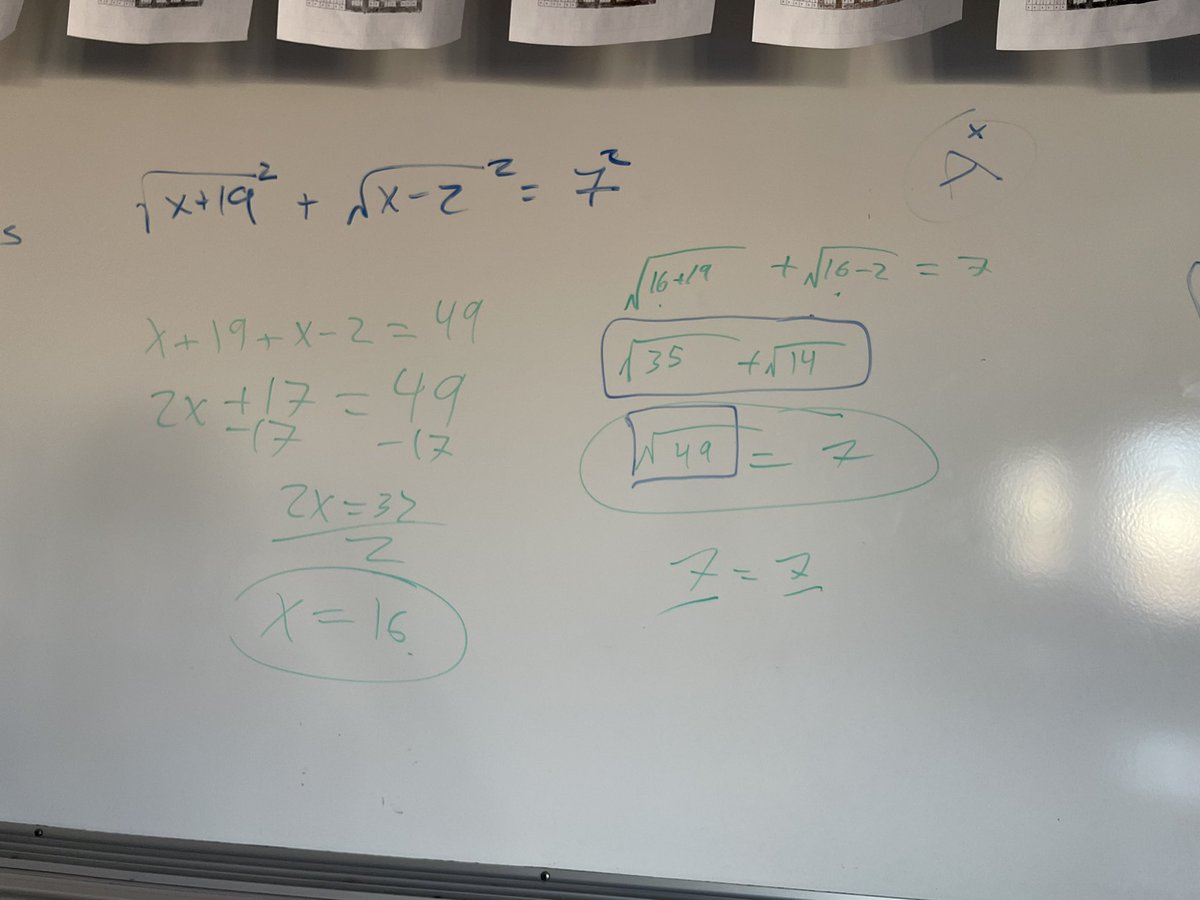 √x+19² + √x-2² = 7²
s
x
x+19+x-2=49
2x+17=49
-17 -17
2x=32
2
x=16
√16+19 + √16-2 = 7
√35 + √14
√49 = 7
7=7